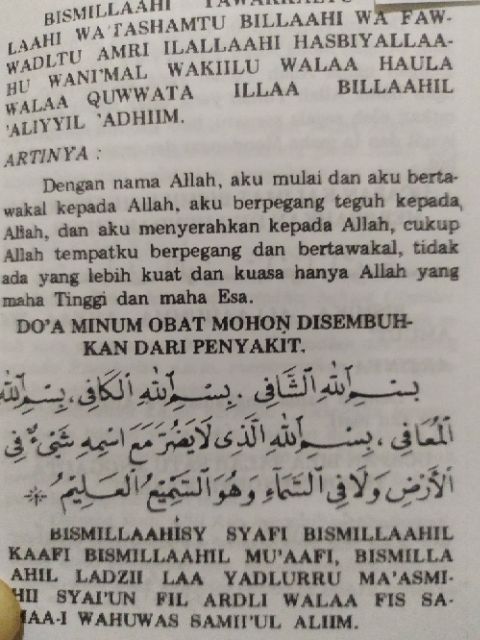 BISMILLAAHI TAWAKKALTU
LAAHI WA'TASHAMTU BILLAAHI WA FAW-
WADLTU AMRI ILALLAAHI HASBIYALLAA-
HU WANI'MAL WAKIILU WALAA HAULA
WALAA QUWWATA ILLAA BILLAAHIL
'ALIYYIL 'ADHIIM.
ARTINYA :
Dengan nama Allah, aku mulai dan aku berta-
wakal kepada Allah, aku berpegang teguh kepada
Allah, dan aku menyerahkan kepada Allah, cukup
Allah tempatku berpegang dan bertawakal, tidak
ada yang lebih kuat dan kuasa hanya Allah yang
maha Tinggi dan maha Esa.
DO'A MINUM OBAT MOHON DISEMBUH-
KAN DARI PENYAKIT.
بِسْمِ اللهِ الشَّافِى . بِسْمِ اللهِ الْكَافِى ، بِسْمِ اللهِ
الْمُعَافِى ، بِسْمِ اللهِ الَّذِى لَا يَضُرُّ مَعَ اسْمِهِ شَيْئٌ فِى
الْأَرْضِ وَلَا فِى السَّمَاءِ وَهُوَ السَّمِيْعُ الْعَلِيْمُ
BISMILLAAHISY SYAFI BISMILLAAHIL
KAAFI BISMILLAAHIL MU'AAFI, BISMILLA
AHIL LADZII LAA YADLURRU MA'ASMI-
HII SYAI'UN FIL ARDLI WALAA FIS SA-
MAA-I WAHUWAS SAMII'UL ALIIM.